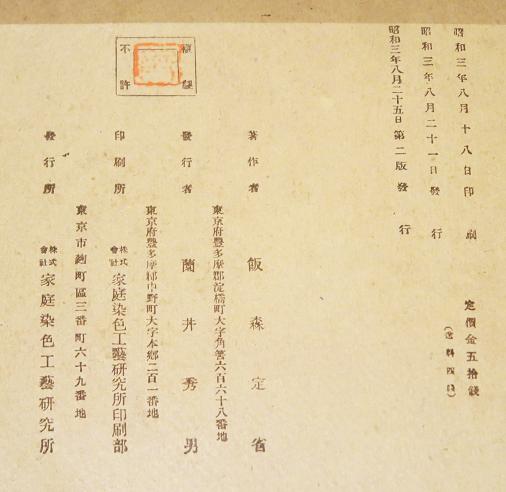 昭和三年八月十八日印刷
昭和三年八月二十一日發行
昭和三年八月二十五日第二版發行
定價金五拾錢
(送料四錢)
東京府豐多摩郡淀橋町大字角筈六百六十八番地
著作者 飯森定省
東京府豐多摩郡中野町大字本鄕二百一番地
發行者 薗井秀男
印刷所 株式會社家庭染色工藝硏究所印刷部
東京市麴町區三番町六十九番地
發行所 株式會社家庭染色工藝硏究所
不許複製